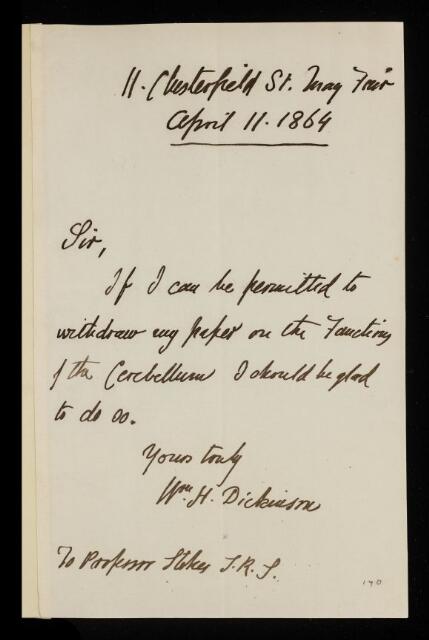 11. Chesterfield St. May Fair
April 11. 1864
Sir,
If I can be permitted to
withdraw my paper on the Functions
of the Cerebellum I should be glad
to do so.
Yours truly
Wm. H. Dickinson
To Professor Stokes F.R.S.
140